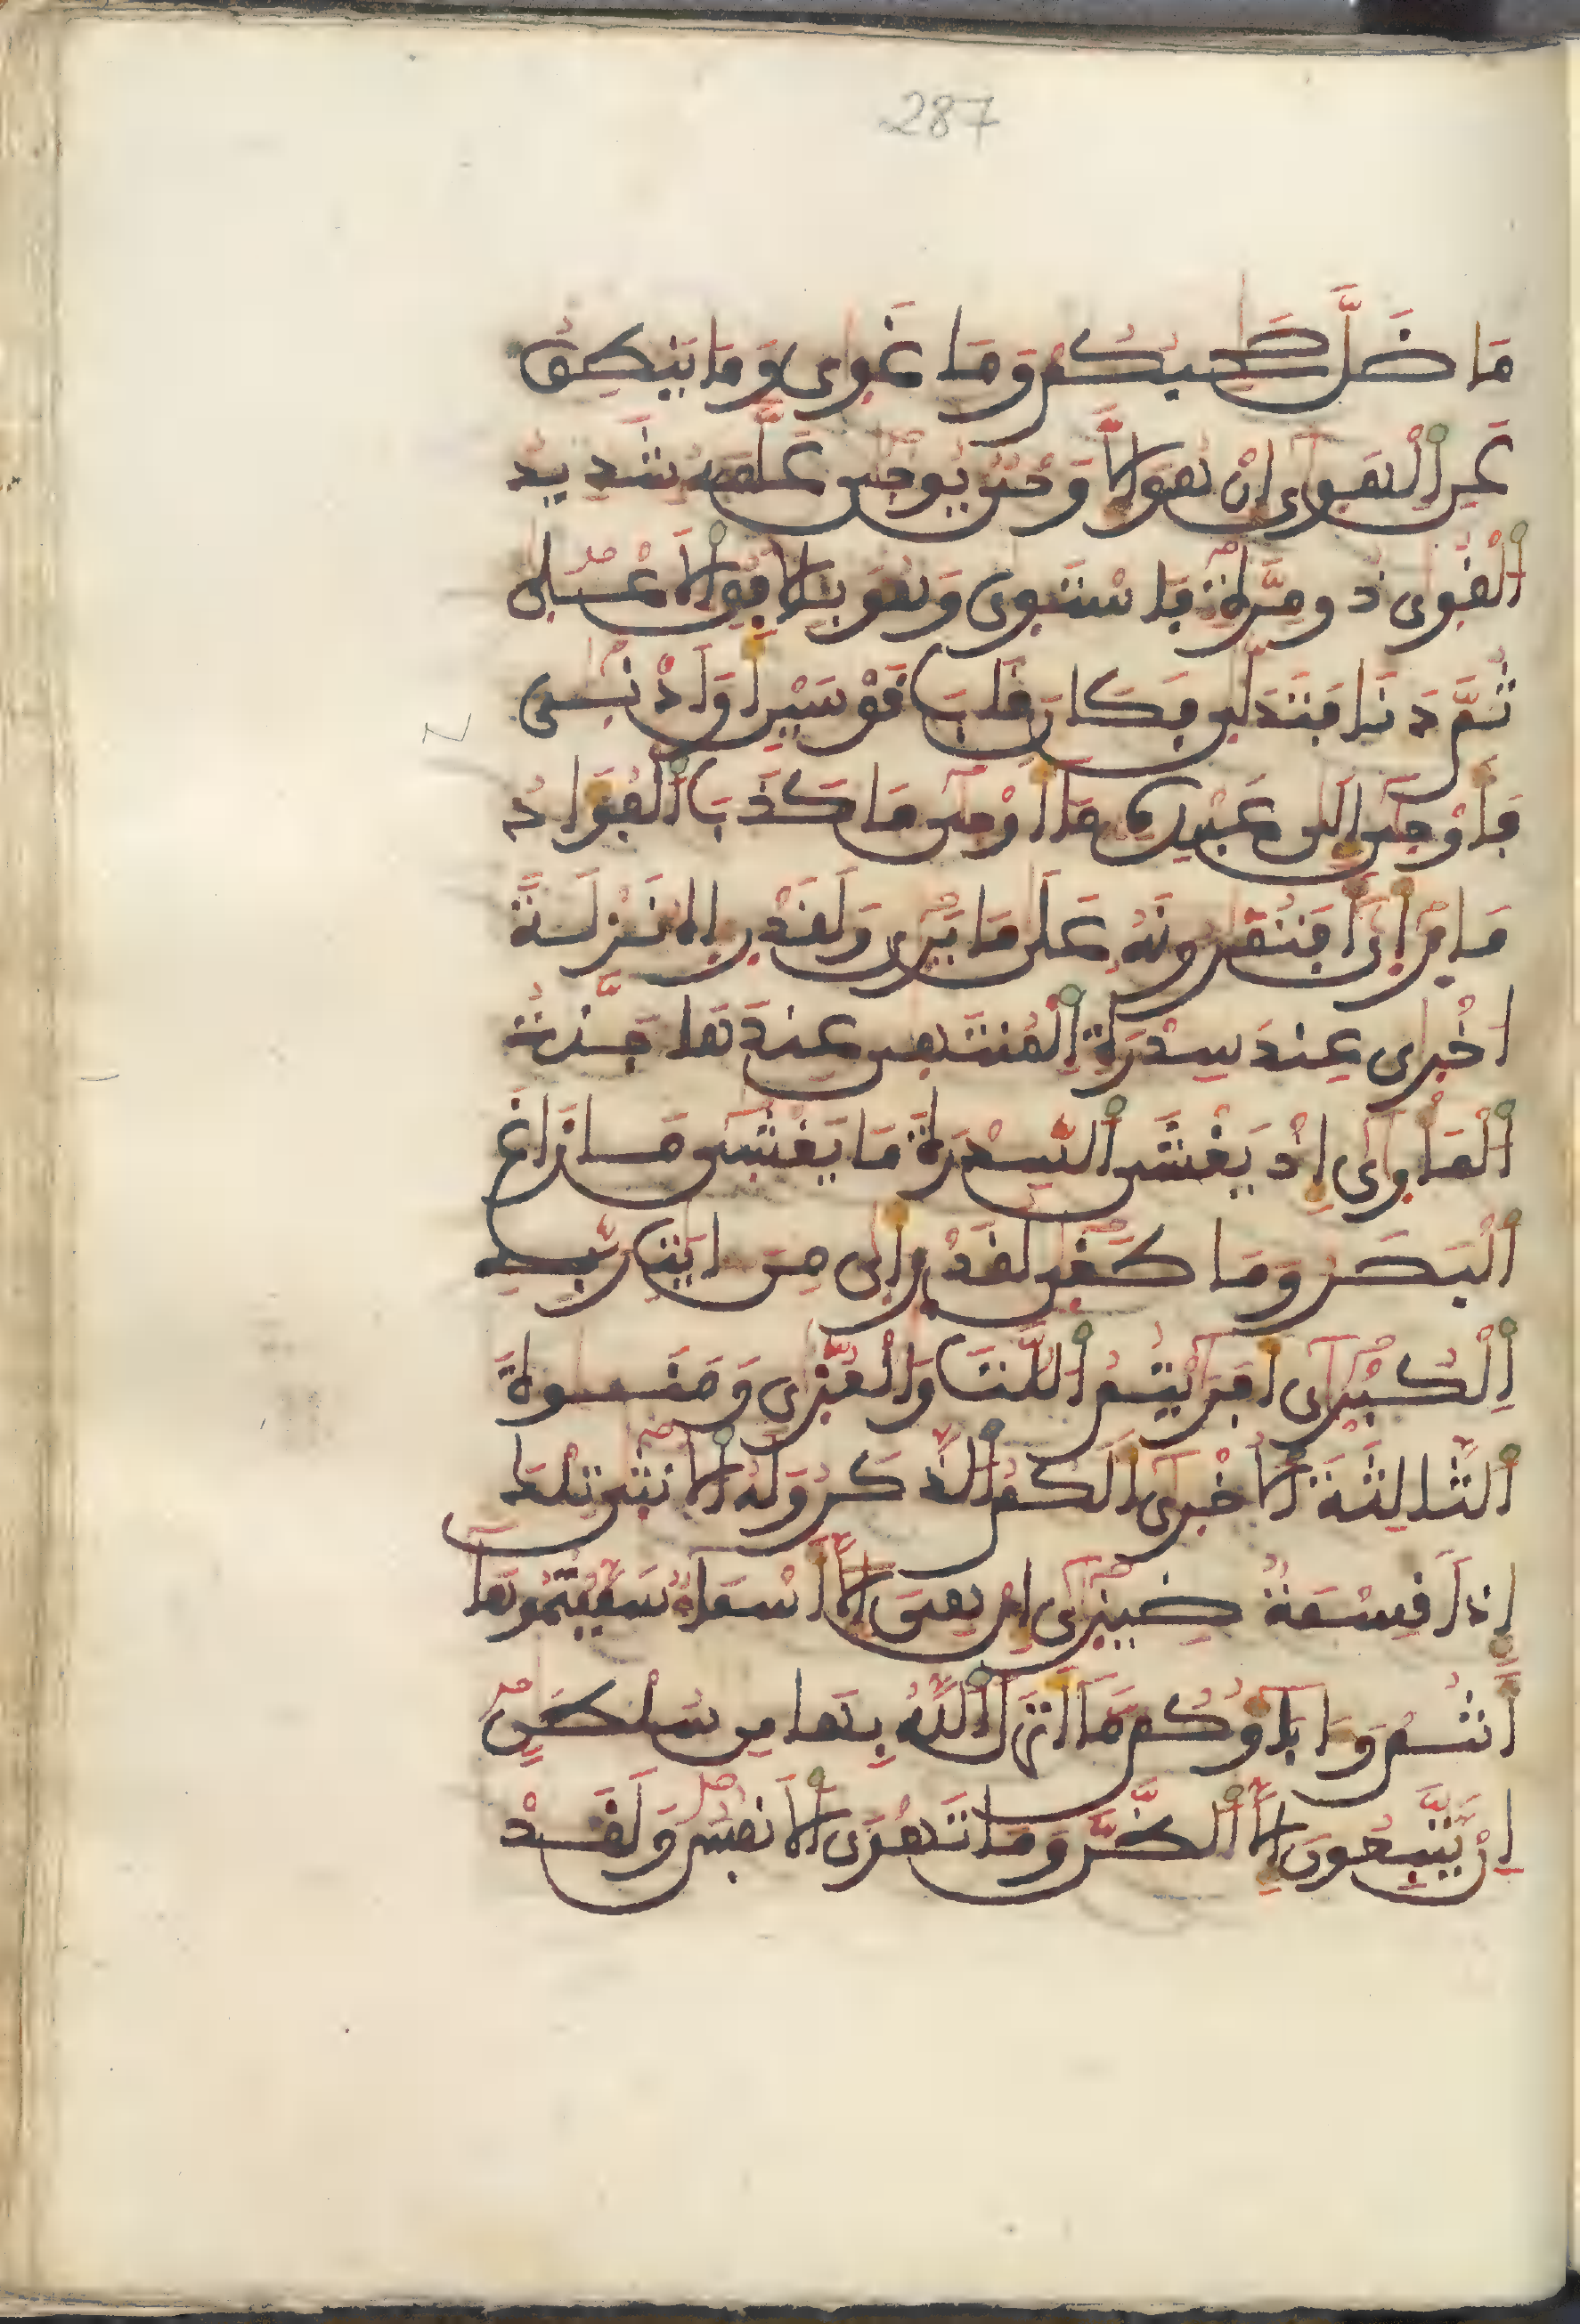 287
مَا ضَلَّ صَٰحِبُكُمْ وَمَا غَوٰى وَمَا يَنطِقُ
عَنِ اِ۬لْهَوٰىٓ إِنْ هُوَ إِلَّا وَحْىٌ يُوحٰى عَلَّمَهُۥ شَدِيدُ
اُ۬لْقُوٰى ذُو مِرَّةٖ فَاسْتَوٰى وَهُوَ بِالُافُقِ اِ۬لَاعْلٰى
ثُمَّ دَنَا فَتَدَلّٰى فَكَانَ قَابَ قَوْسَيْنِ أَوَ اَدْنٰى
فَأَوْحٰىٓ إِلٰى عَبْدِهِۦ مَآ أَوْحٰى مَا كَذَبَ اَ۬لْفُؤَادُ
مَا رَأٰىٓ أَفَتُمَٰرُونَهُۥ عَلٰى مَا يَرٰى وَلَقَدْ رِءَاهُ نَزْلَةً
اُخْرٰى عِندَ سِدْرَةِ اِ۬لْمُنتَهٰى عِندَهَا جَنَّةُ
اُ۬لْمَأْوٰىٓ إِذْ يَغْشَى اَ۬لسِّدْرَةَ مَا يَغْشٰى مَا زَاغَ
اَ۬لْبَصَرُ وَمَا طَغٰى لَقَدْ رَأٰى مِنَ اٰيَٰتِ رَبِّهِ
اِ۬لْكُبْرٰىٓ أَفَرَءَيْتُمُ اُ۬للَّٰتَ وَالْعُزّٰى وَمَنَوٰةَ
اَ۬لثَّالِثَةَ اَ۬لُاخْرٰىٓ أَلَكُمُ اُ۬لذَّكَرُ وَلَهُ اُ۬لُانثٰى تِلْكَ
إِذاٗ قِسْمَةٞ ضِيزٰىٓ إِنْ هِىَ إِلَّآ أَسْمَآءٞ سَمَّيْتُمُوهَآ
أَنتُمْ وَءَابَآؤُكُم مَّآ أَنزَلَ اَ۬للَّهُ بِهَا مِن سُلْطَٰنٍ
اِنْ يَّتَّبِعُونَ إِلَّا اَ۬لظَّنَّ وَمَا تَهْوَى اَ۬لَانفُسُ وَلَقَدْ